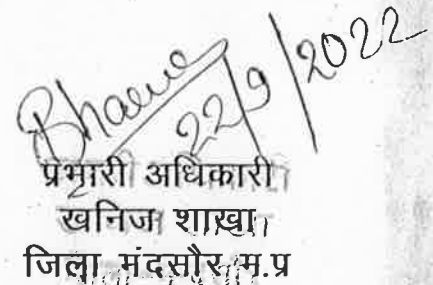 22/9/2022
प्रभारी अधिकारी
खनिज शाखा
जिला मंदसौर म.प्र